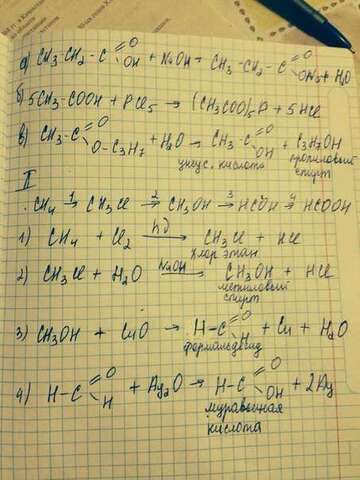 а) CH3CH2-C(=O)OH + NaOH → CH3-CH2-C(=O)ONa + H2O
б) 5CH3-COOH + PCl5 → (CH3COO)5P + 5HCl
в) CH3-C(=O)O-C3H7 + H2O → CH3-C(=O)OH + C3H7OH
уксус. кислота пропиловый спирт
II
CH4 1→ CH3Cl 2→ CH3OH 3→ HCOH 4→ HCOOH
1) CH4 + Cl2 hν→ CH3Cl + HCl
хлор этан
2) CH3Cl + H2O NaOH→ CH3OH + HCl
метиловый спирт
3) CH3OH + CuO → H-C(=O)H + Cu + H2O
формальдегид
4) H-C(=O)H + Ag2O → H-C(=O)OH + 2Ag
муравьиная
кислота